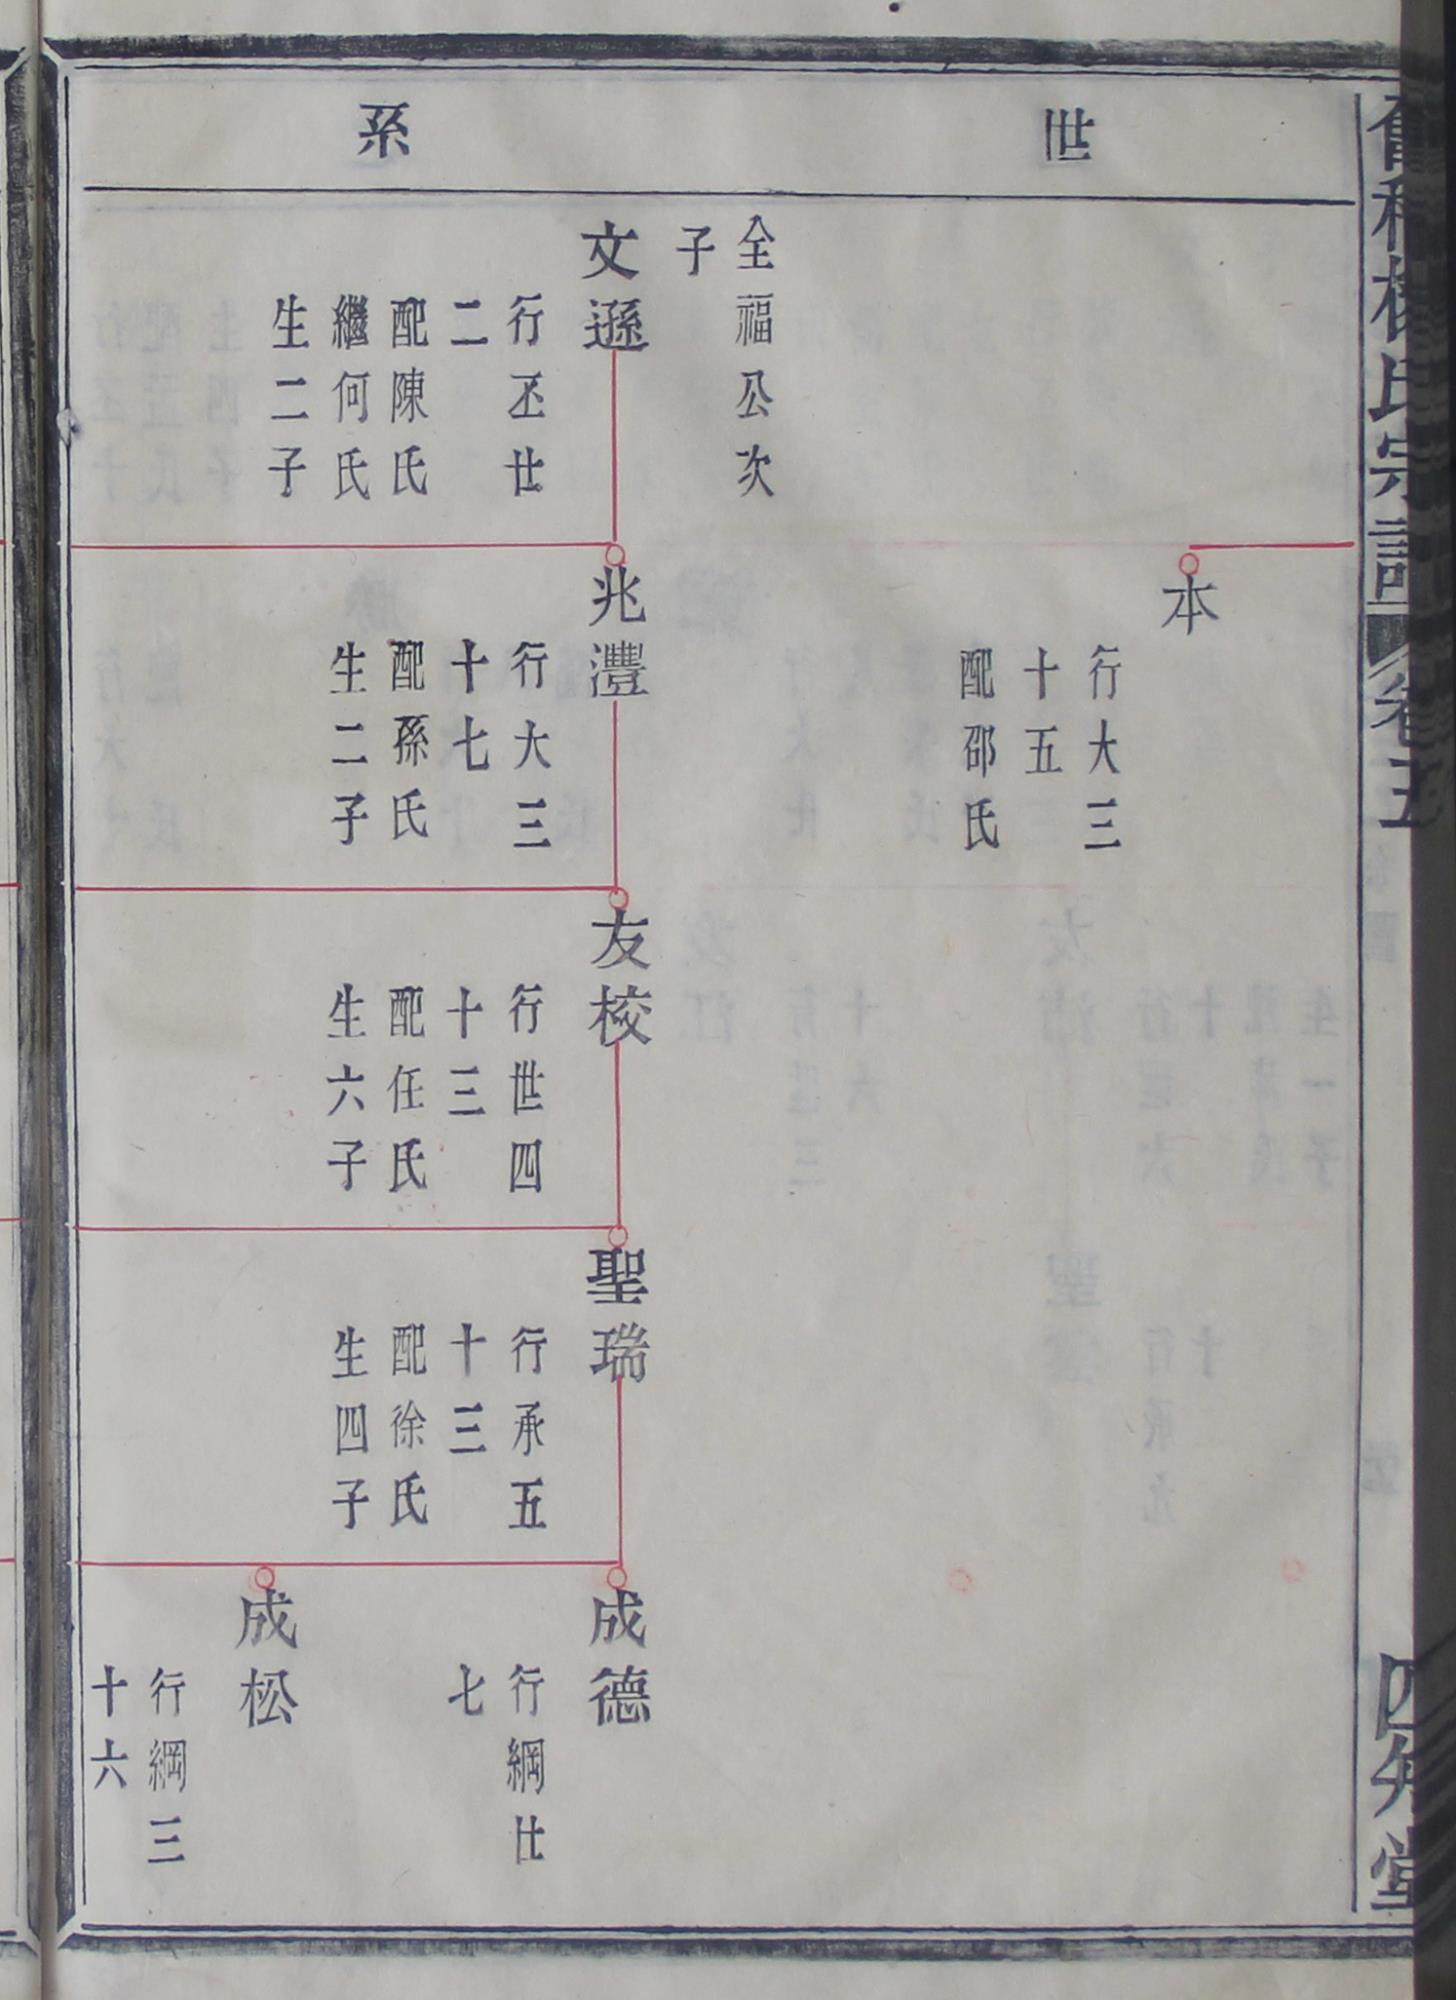 楊氏宗譜
卷五
四知堂
世系
全福公次
子
文遜
行丕廿
二
配陳氏
繼何氏
生二子
本
行大三
十五
配邵氏
兆灃
行大三
十七
配孫氏
生二子
友校
行世四
十三
配任氏
生六子
聖瑞
行承五
十三
配徐氏
生四子
成德
行綱廿
七
成松
行綱三
十六